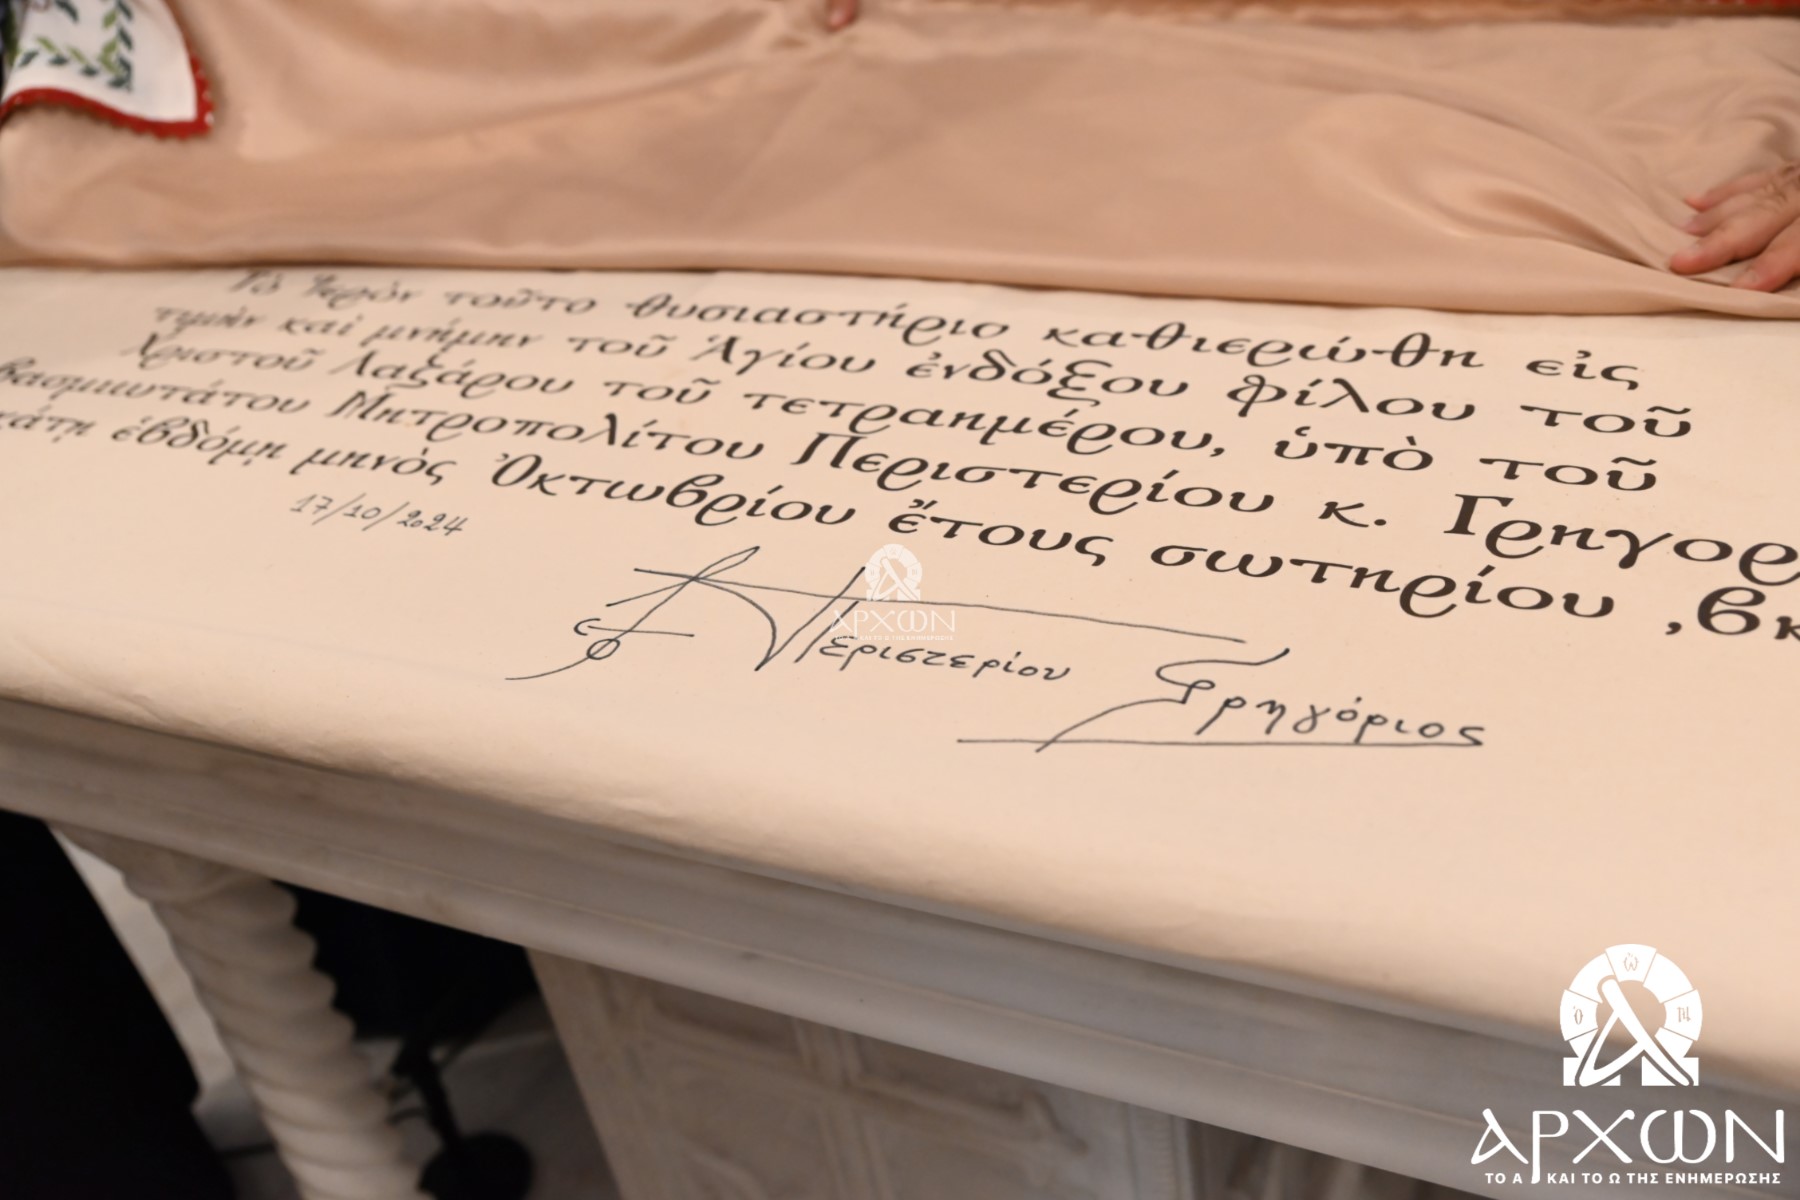 Τὸ Ἱερὸν τοῦτο θυσιαστήριο καθιερώθη εἰς
τιμὴν καὶ μνήμην τοῦ Ἁγίου ἐνδόξου φίλου τοῦ
Χριστοῦ Λαζάρου τοῦ τετραημέρου, ὑπὸ τοῦ
βασμιωτάτου Μητροπολίτου Περιστερίου κ. Γρηγορ
κάτῃ ἑβδόμῃ μηνὸς Ὀκτωβρίου ἔτους σωτηρίου ,βκ
17/10/2024
Περιστερίου Γρηγόριος
ΑΡΧΩΝ
ΤΟ Α ΚΑΙ ΤΟ Ω ΤΗΣ ΕΝΗΜΕΡΩΣΗΣ
ΑΡΧΩΝ
ΤΟ Α ΚΑΙ ΤΟ Ω ΤΗΣ ΕΝΗΜΕΡΩΣΗΣ